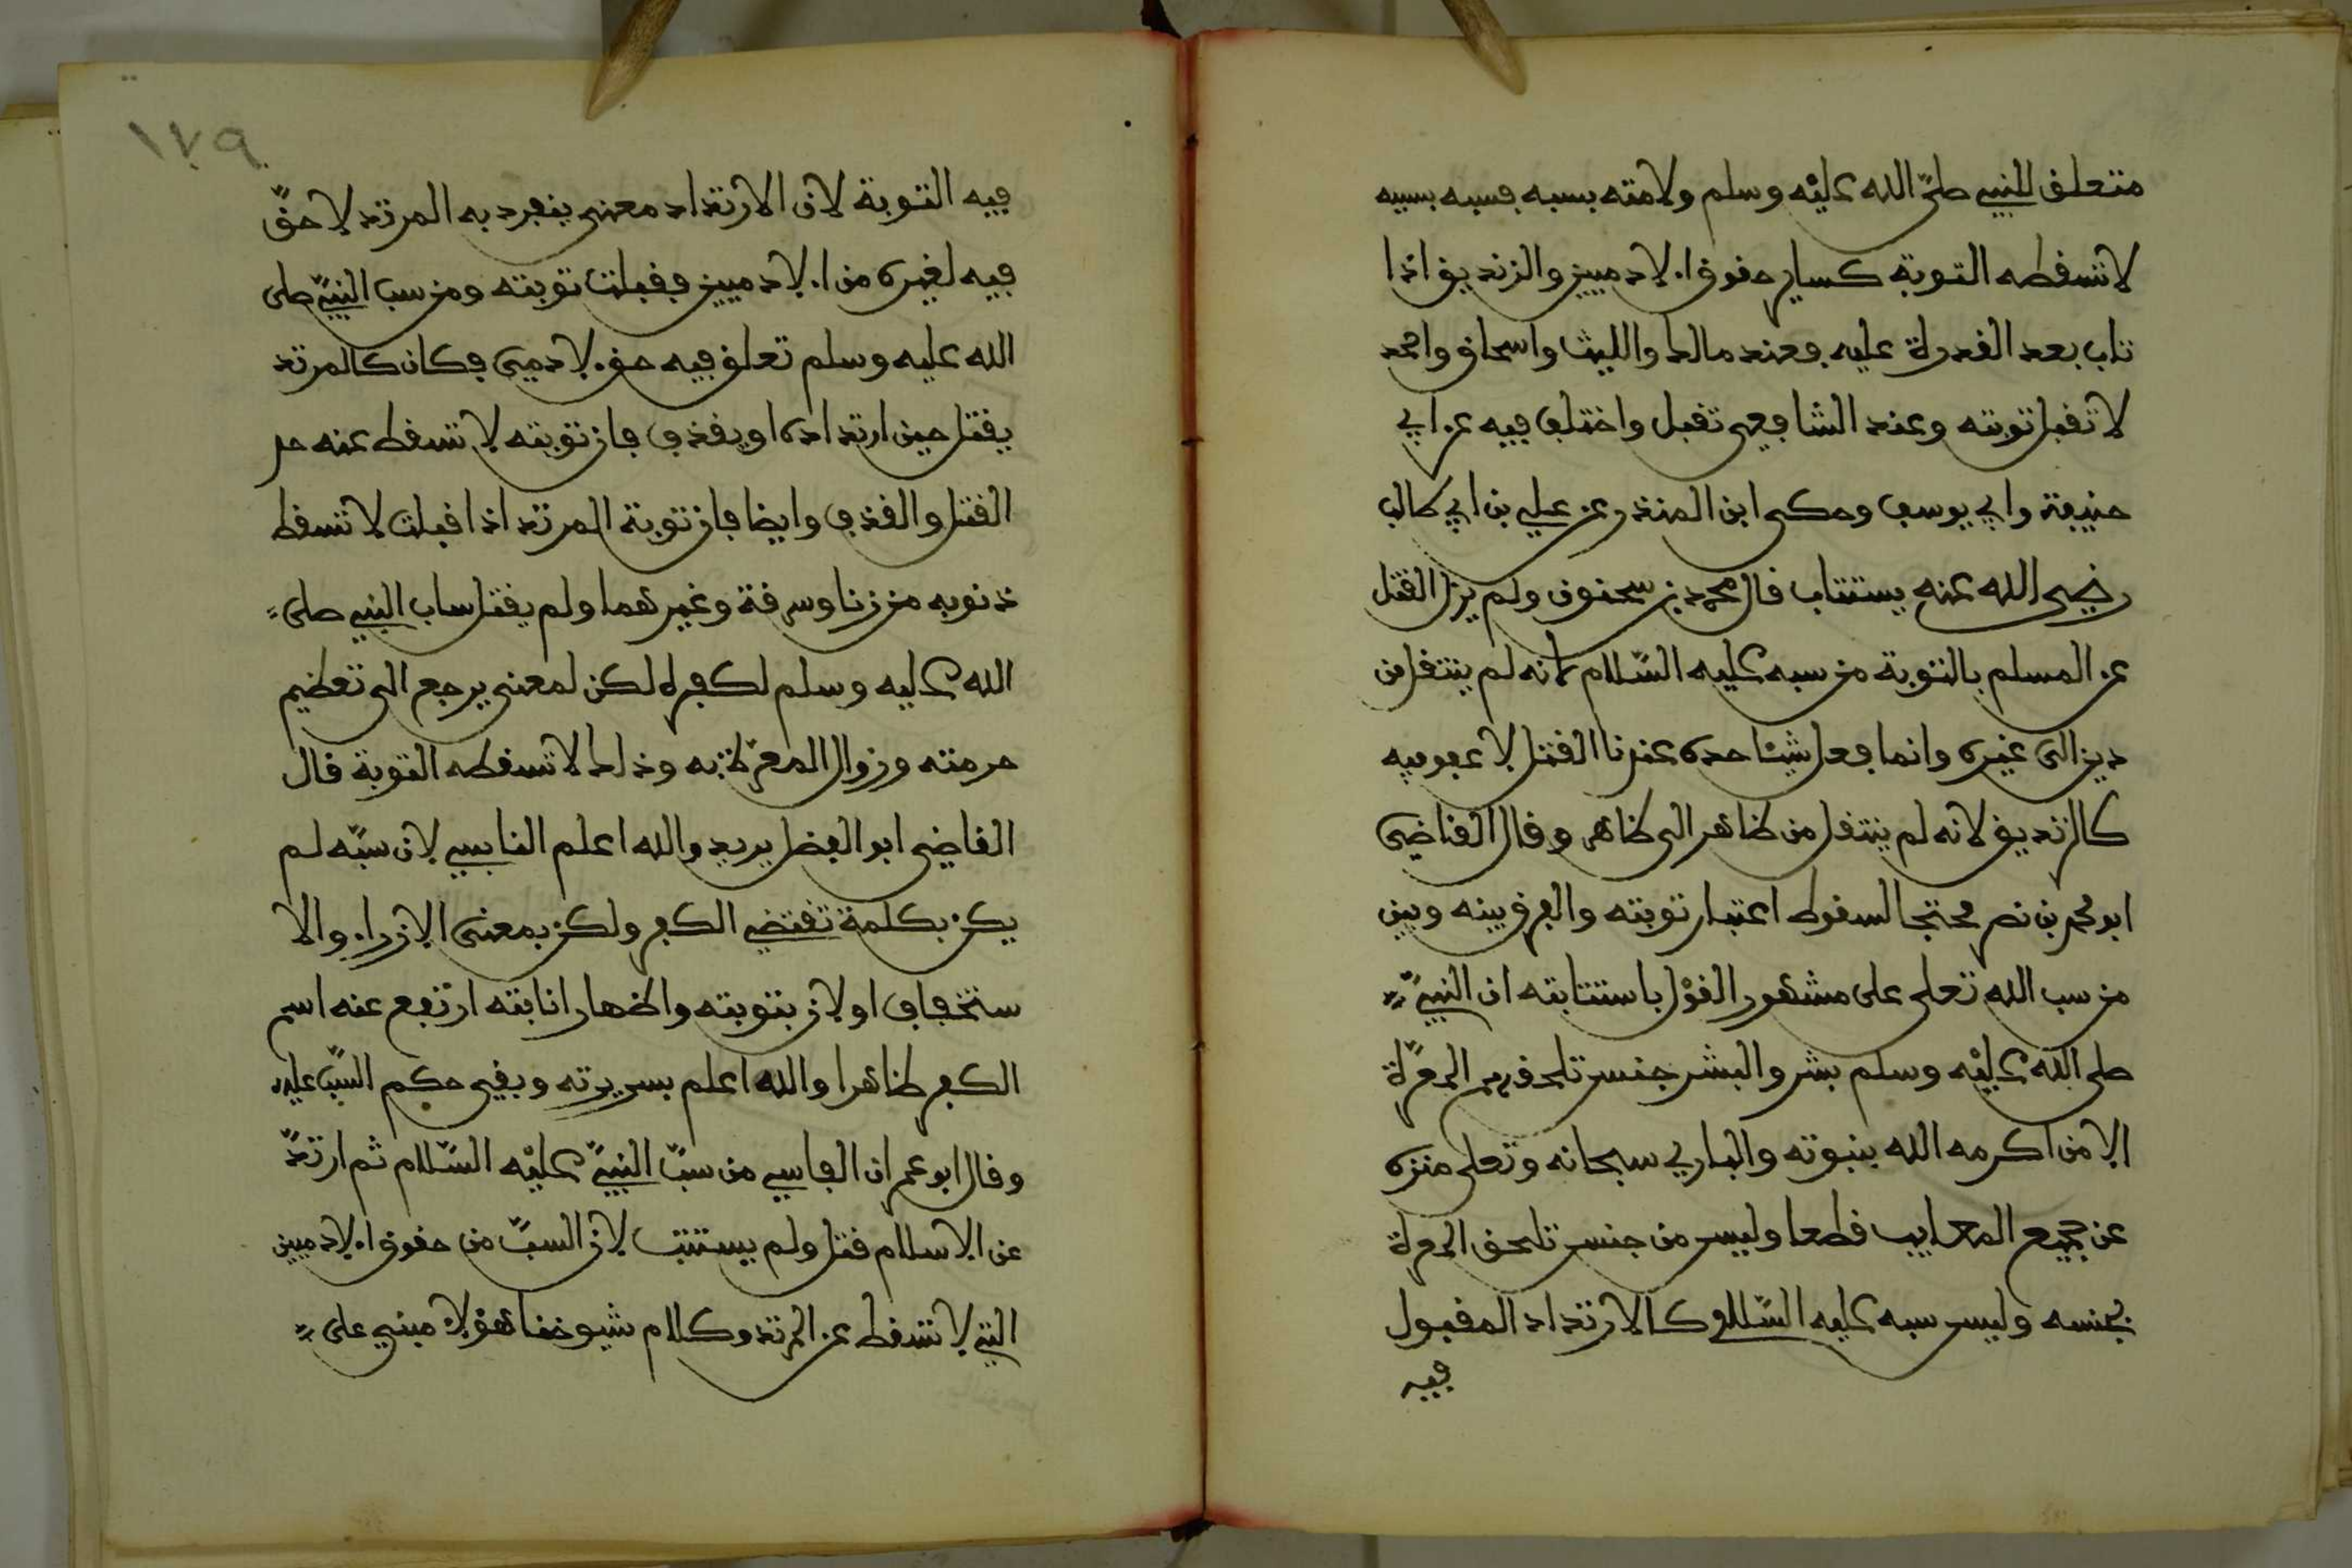 متعلق للنبي صلى الله عليه وسلم ولامته بسببه فسبه بسببه
لا تسقطه التوبة كساير حقوق الادميين والزنديق اذا
تاب بعد القدرة عليه فعند مالك والليث واسحاق واحمد
لا تقبل توبته وعند الشافعي تقبل واختلف فيه عن ابي
حنيفة وابي يوسف وحكى ابن المنذر عن علي بن ابي طالب
رضي الله عنه يستتاب قال محمد بن سحنون ولم يزل القتل
عن المسلم بالتوبة من سبه عليه السّلام لانه لم ينتقل من
دين الى غيره وانما فعل شيئا حده عندنا القتل لا عفو فيه
كالزنديق لانه لم ينتقل من ظاهر الى ظاهر وقال القاضي
ابو محمد بن نصر محتجا لسقوط اعتبار توبته والفرق بينه وبين
من سب الله تعلى على مشهور القوْل باستتابته ان النبيّ
صلى الله عليْه وسلم بشر والبشر جنس تلحقهم المعرّة
الا من اكرمه الله بنبوته والباري سبحانه وتعلى منزه
عن جميع المعايب قطعا وليس من جنس تلحق المعرة
بجنسه وليس سبه عليه السّلام كالارتداد المقبول
فيه
١٧٩
فيه التوبة لان الارتداد معنى ينفرد به المرتد لا حقّ
فيه لغيره من الادميين فقبلت توبته ومن سب النبيّ صلى
الله عليه وسلم تعلق فيه حق لادمي فكان كالمرتد
يقتل حين ارتداده او يقذف فان توبته لا تسقط عنه حد
القتل والقذف وايضا فان توبة المرتد اذا قبلت لا تسقط
ذنوبه من زنا وسرقة وغيرهما ولم يقتل ساب النبي صلى
الله عليه وسلم لكفره لكن لمعنى يرجع الى تعظيم
حرمته وزوال المعرّة به وذلك لا تسقطه التوبة قال
القاضي ابو الفضل يريد والله اعلم القابسي لان سبّه لم
يكن بكلمة تقتضي الكفر ولكن بمعنى الازراء والا
ستخفاف او لان بتوبته واظهار انابته ارتفع عنه اسم
الكفر ظاهرا والله اعلم بسريرته وبقي حكم السّب عليه
وقال ابو عمران الفاسي من سبّ النبيّ عليْه السّلام ثم ارتدّ
عن الاسلام قتل ولم يستتب لان السبّ من حقوق الادميين
التي لا تسقط عن المرتد وكلام شيوخنا هؤلاء مبني على